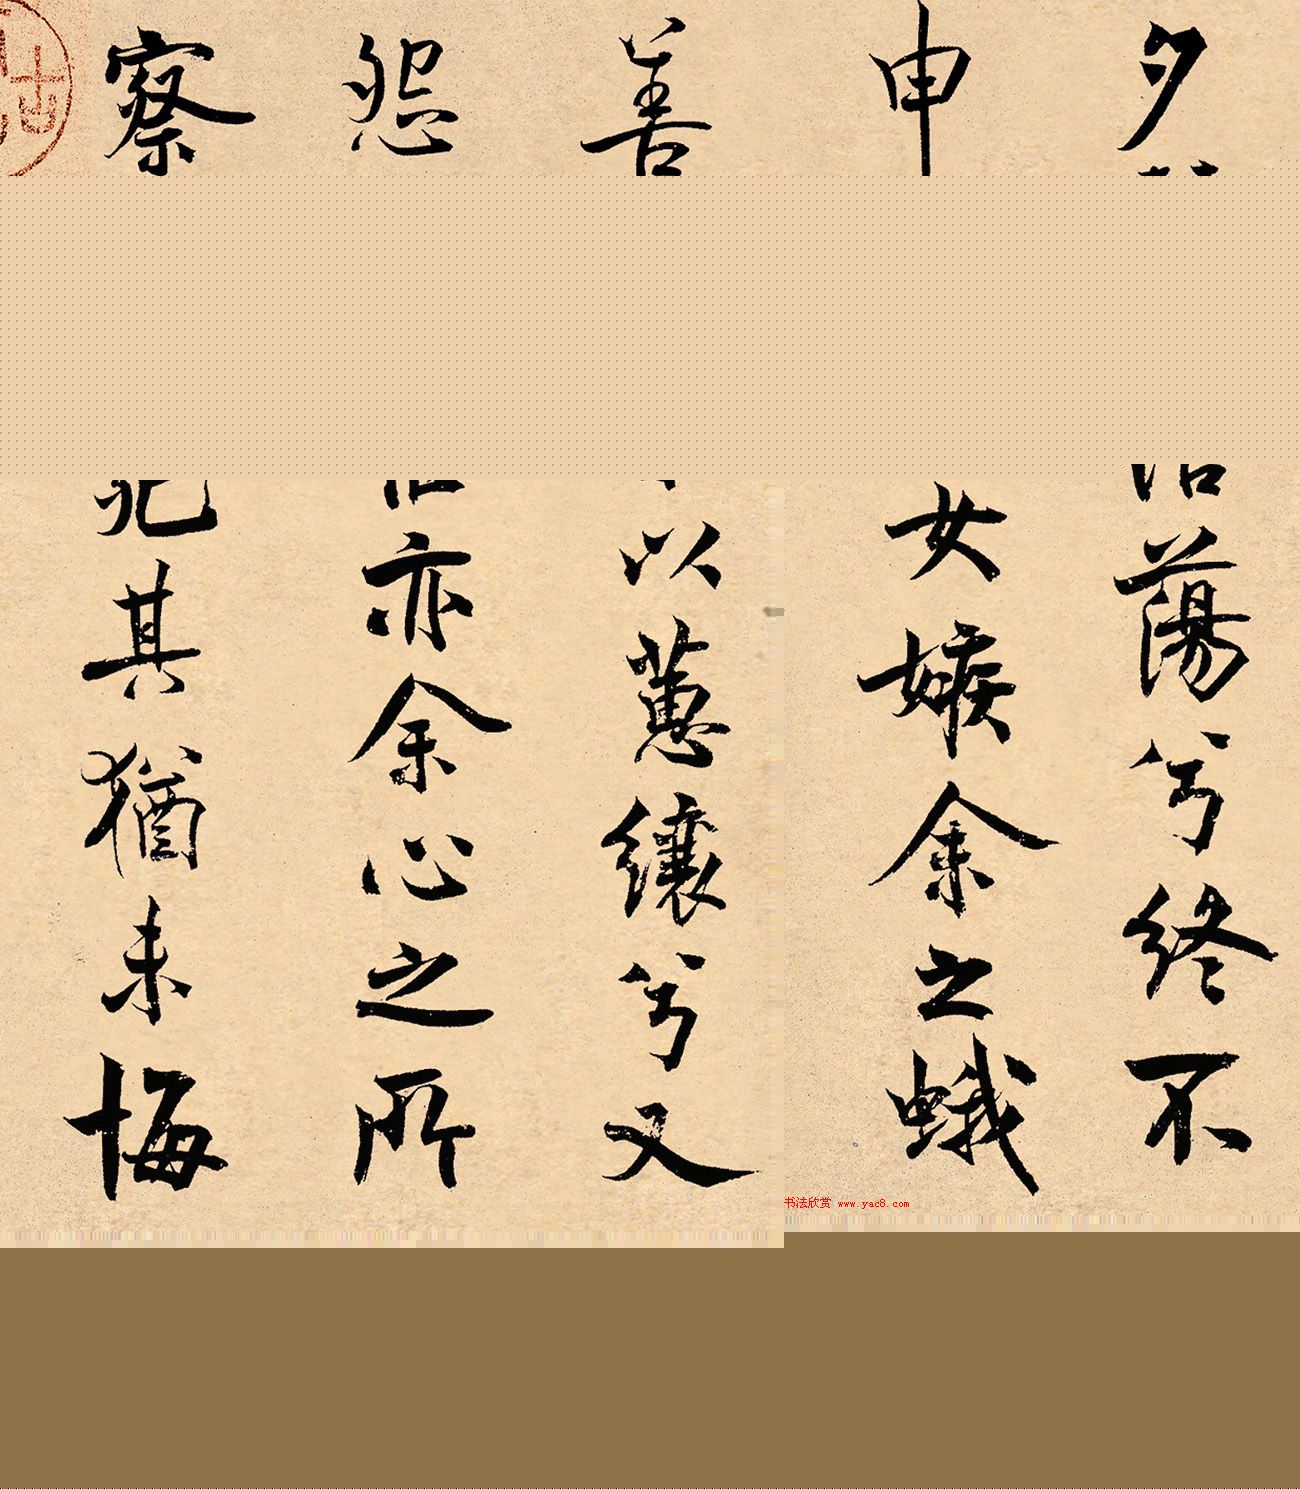 夕蕩兮終不
申女嫉余之蛾
善以蕙纕兮又
怨亦余心之所
察其猶未悔
书法欣赏 www.yac8.com